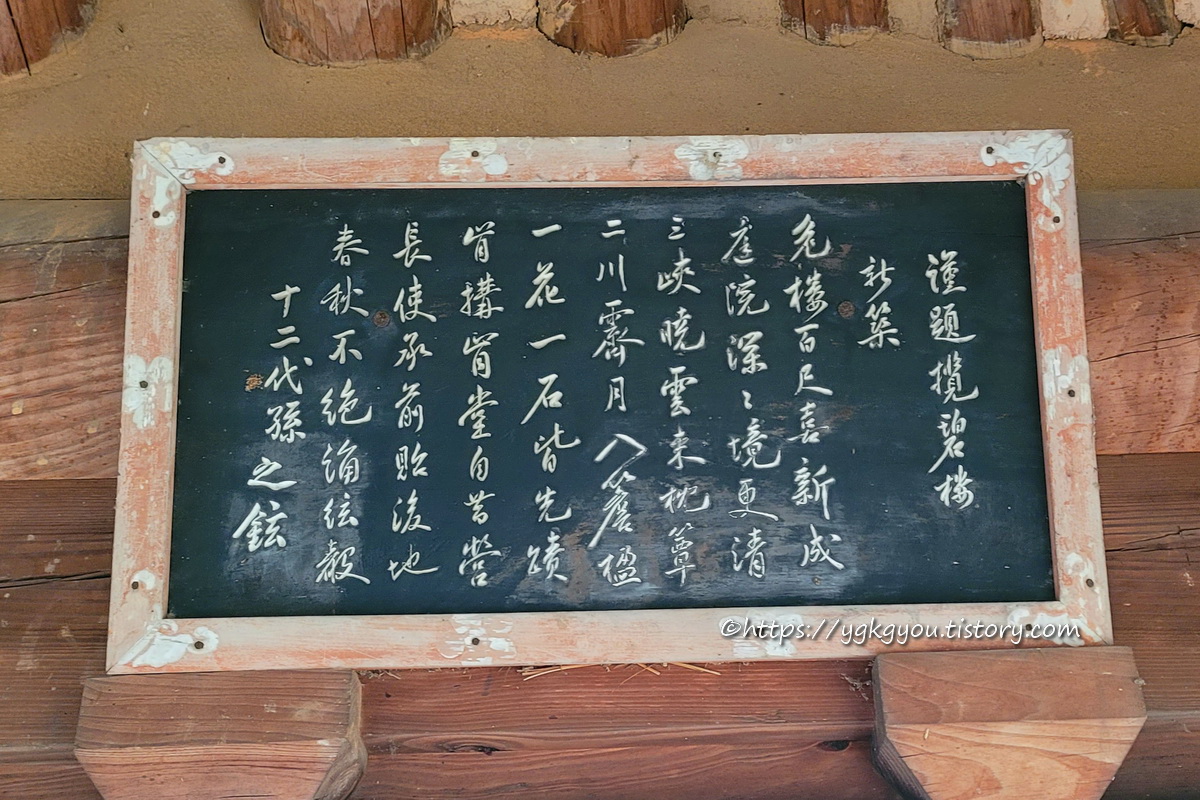 謹題攬碧樓
新築
危樓百尺喜新成
庭院深〻境更清
三峽曉雲來枕簟
二川霽月入簷楹
一花一石皆先蹟
肯搆肯堂自昔營
長使承前貽後地
春秋不絶誦絃聲
十二代孫之鉉
©https://ygkgyou.tistory.com